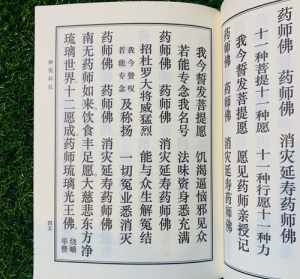 十一种菩提十一种愿 十一种行愿十一种力
药师佛 药师佛 消灾延寿药师佛
我今誓发菩提愿 愿见药师亲授记
药师佛 药师佛 消灾延寿药师佛
我今誓发菩提愿 饥渴逼恼邪见众
药师佛 药师佛 消灾延寿药师佛
若能专念我名号 法味资身悉充满
药师佛 药师佛 消灾延寿药师佛
招杜罗大将威猛烈 能与众生解冤结
我今赞叹
若能专念 及称扬 一切冤业悉消灭
南无药师如来饮食丰足愿大慈悲东方净
琉璃世界十二愿成药师琉璃光王佛。
四五